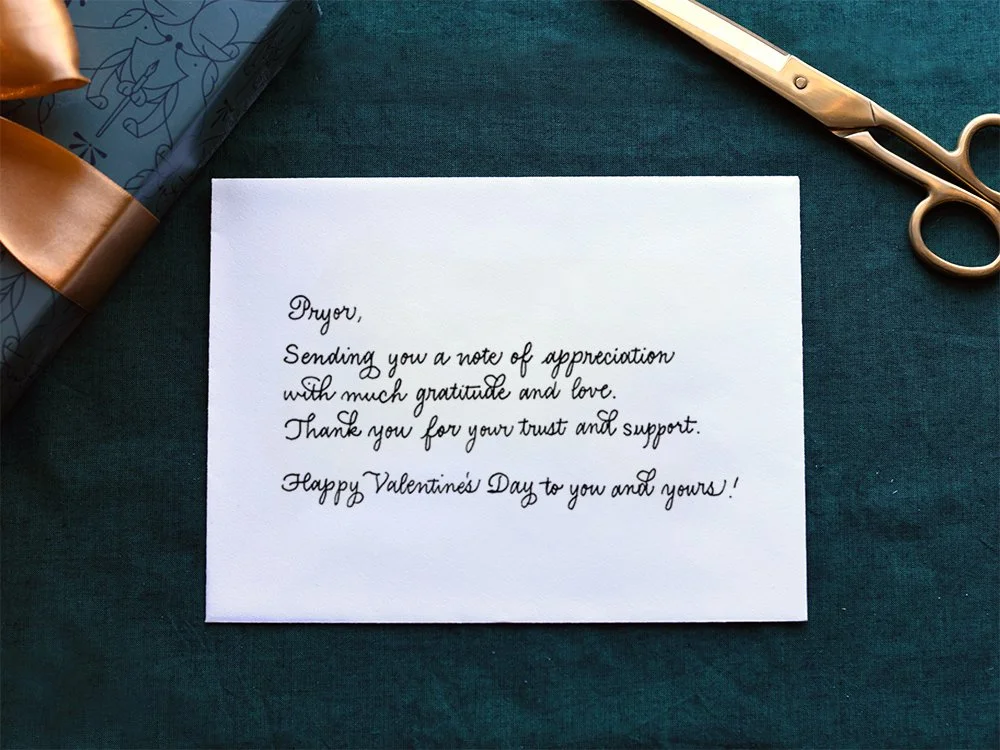 Pryor,
Sending you a note of appreciation
with much gratitude and love.
Thank you for your trust and support.
Happy Valentine's Day to you and yours!